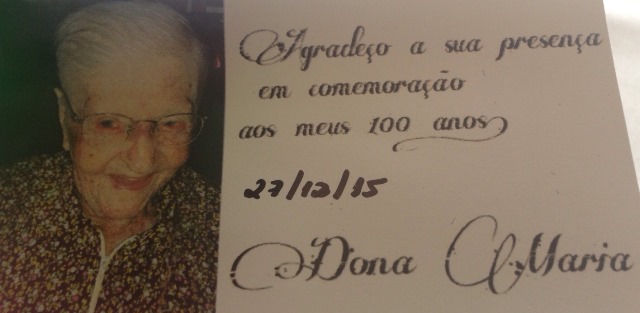 Agradeço a sua presença
em comemoração
aos meus 100 anos
27/12/15
Dona Maria